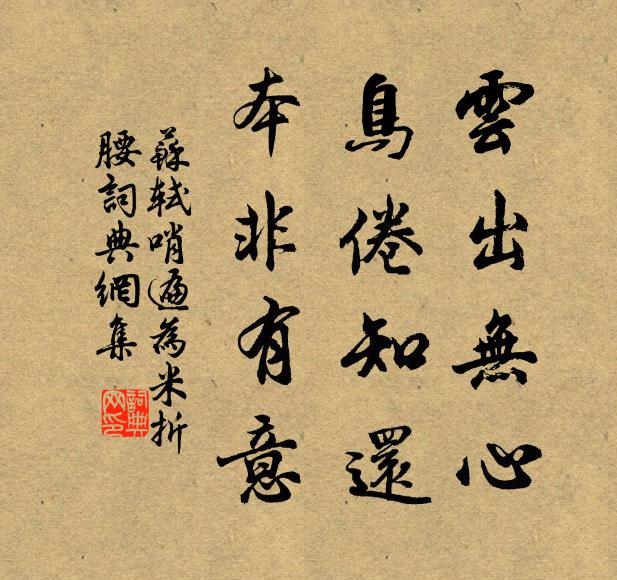 雲出無心
鳥倦知還
本非有意
蘇軾哨遍為米折
腰詞典網集
詞典
网印